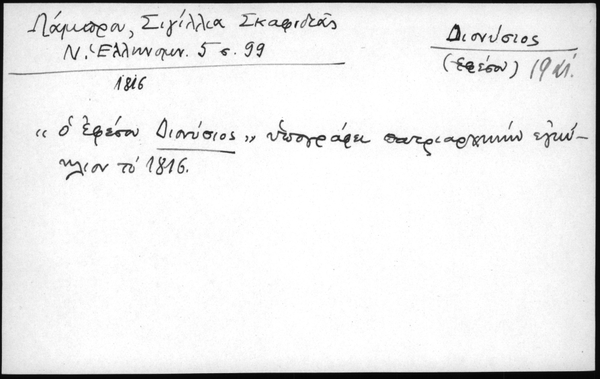 Λάμπρου, Σιγίλλια Σκαφιδιᾶς
Ν. Ἑλληνομν. 5 σ. 99
Διονύσιος
(Ἐφέσου) 19 αἰ.
1816
« ὁ Ἐφέσου Διονύσιος » ὑπογράφει πατριαρχικήν ἐγκύ-
κλιον τό 1816.